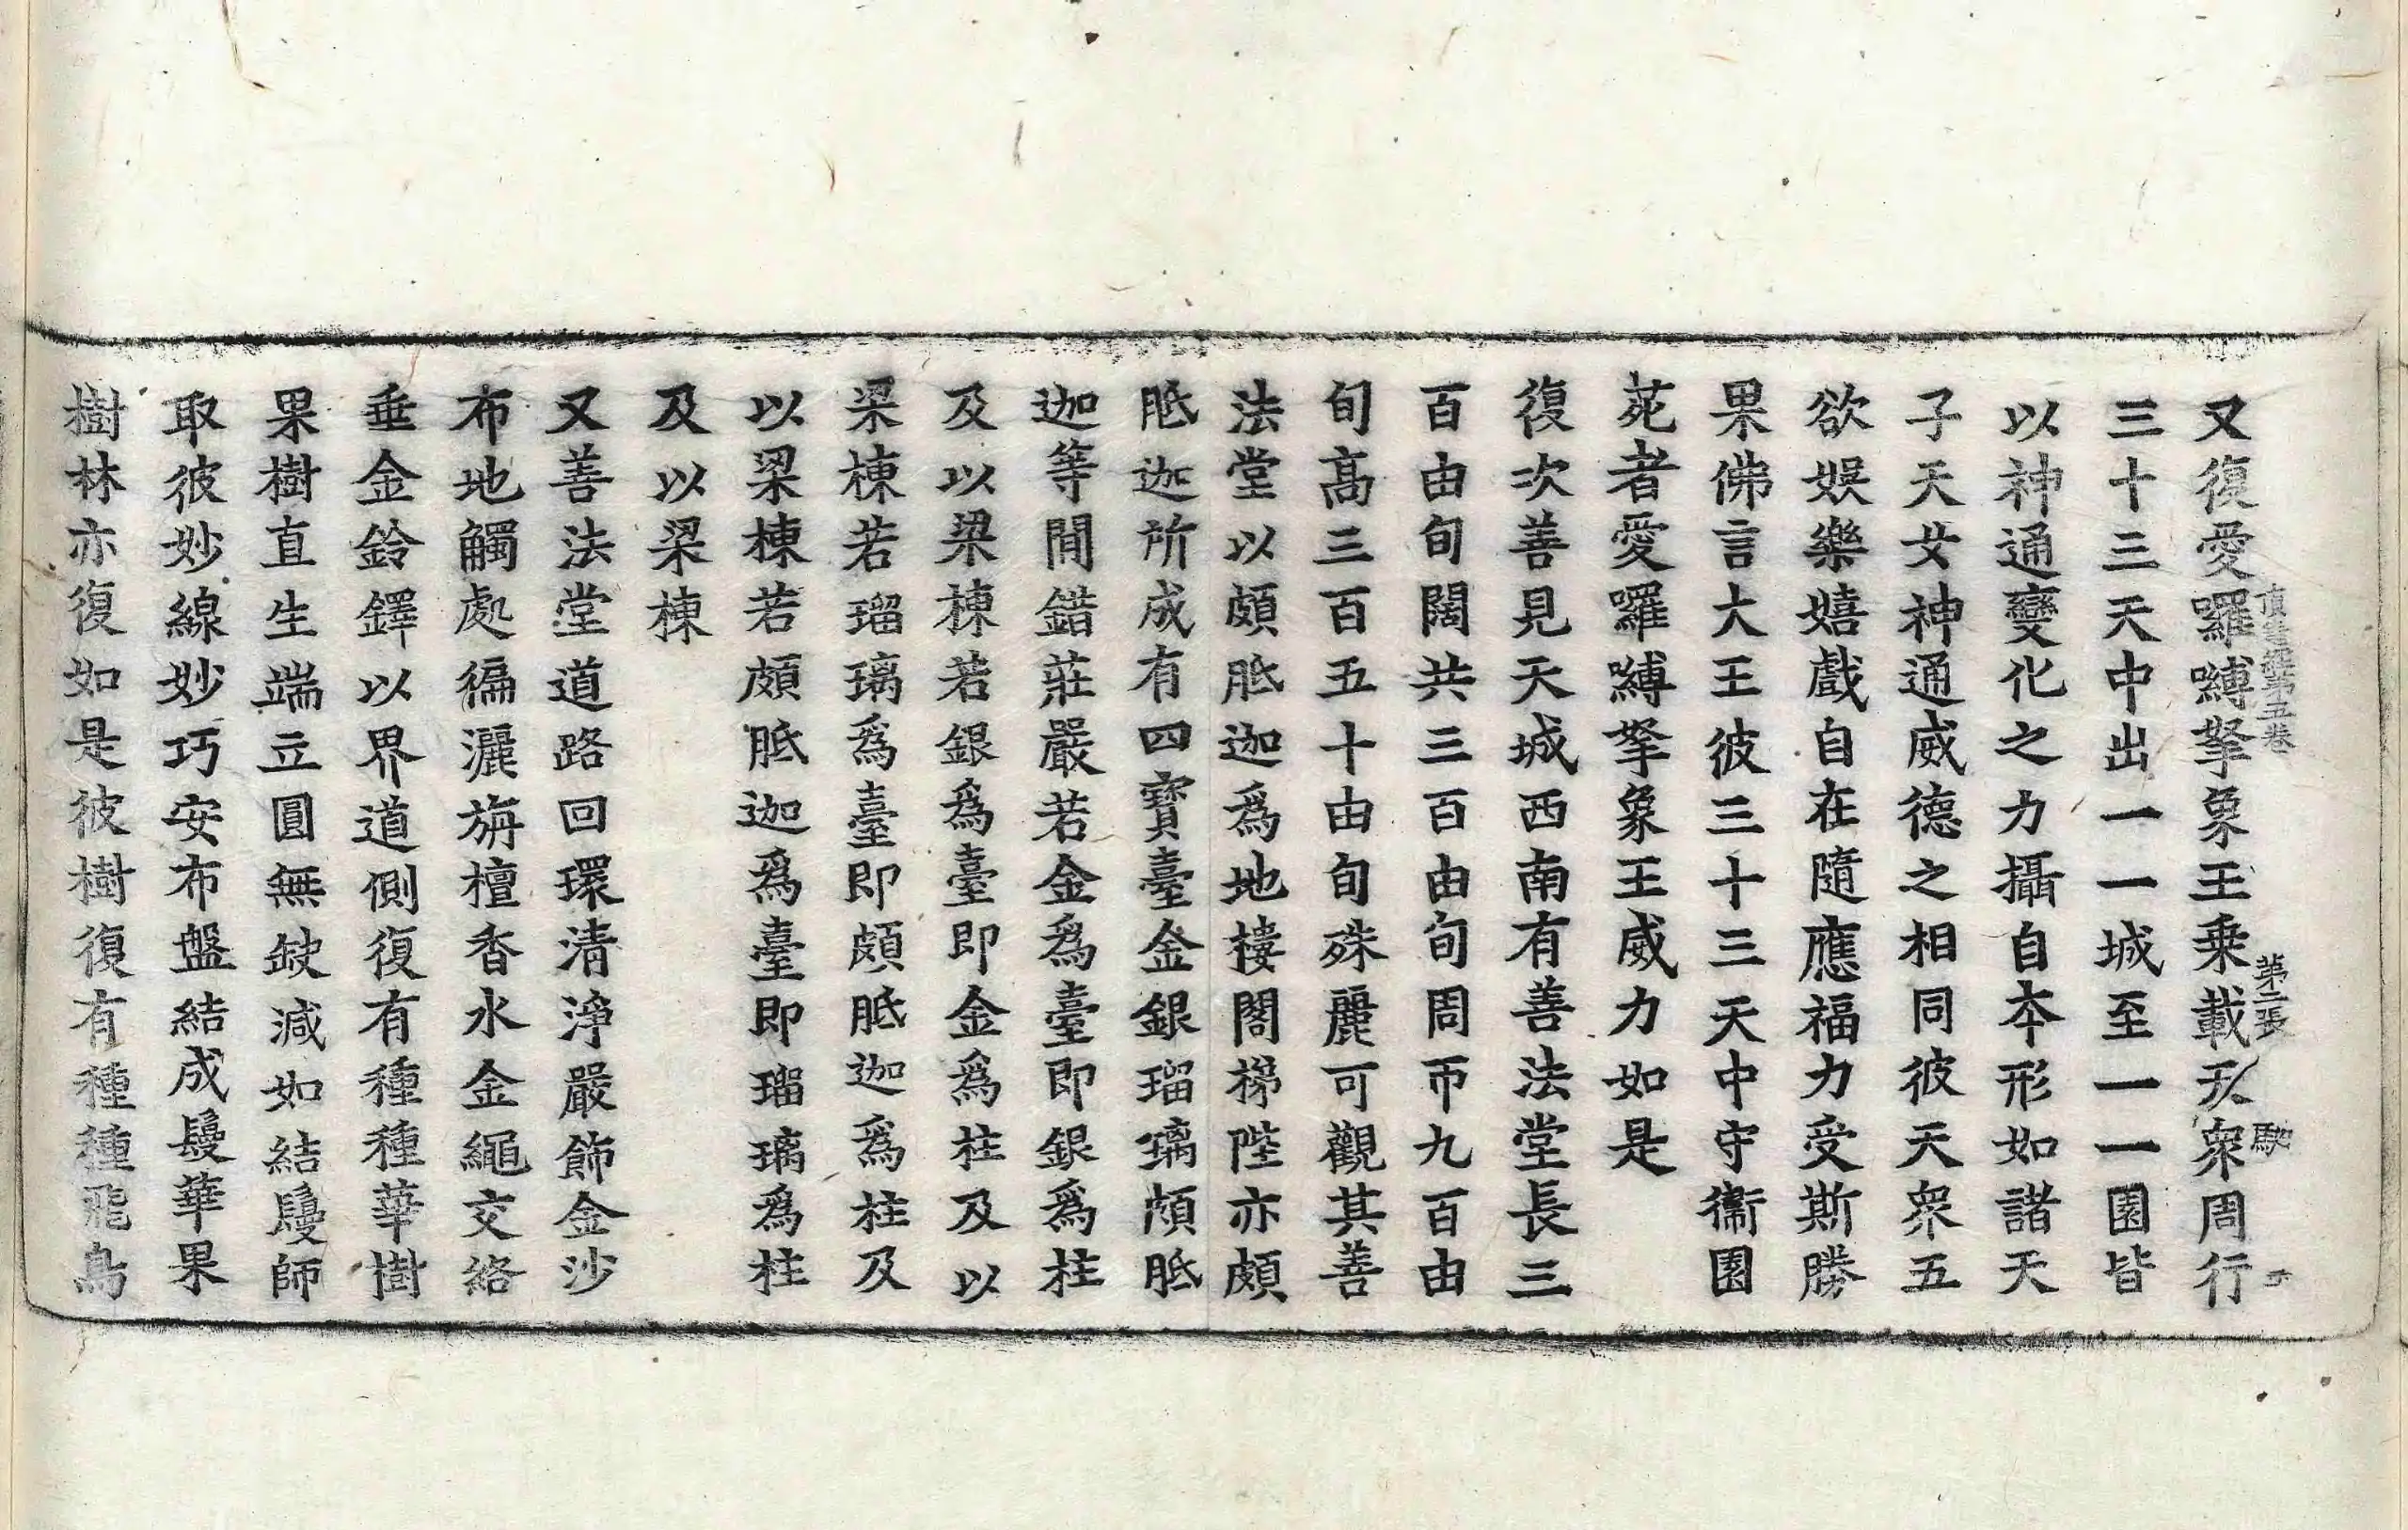 又復愛囉嚩拏象王乗載天衆周行
三十三天中出一一城至一一園皆
以神通變化之力攝自本形如諸天
子天女神通威德之相同彼天衆五
欲娛樂嬉戲自在隨應福力受斯勝
果佛言大王彼三十三天中守衞園
苑者愛囉嚩拏象王威力如是
復次善見天城西南有善法堂長三
百由旬闊共三百由旬周帀九百由
旬髙三百五十由旬殊麗可觀其善
法堂以頗胝迦爲地樓閣梯陛亦頗
胝迦所成有四寶臺金銀瑠璃頗胝
迦等間錯莊嚴若金爲臺即銀爲柱
及以梁棟若銀爲臺即金爲柱及以
梁棟若瑠璃爲臺即頗胝迦爲柱及
以梁棟若頗胝迦爲臺即瑠璃爲柱
及以梁棟
又善法堂道路回環清淨嚴飾金沙
布地觸處徧灑旃檀香水金繩交絡
垂金鈴鐸以界道側復有種種華樹
果樹直生端立圓無缺減如結鬘師
取彼妙線妙巧安布盤結成鬘華果
樹林亦復如是彼樹復有種種飛鳥
第二張